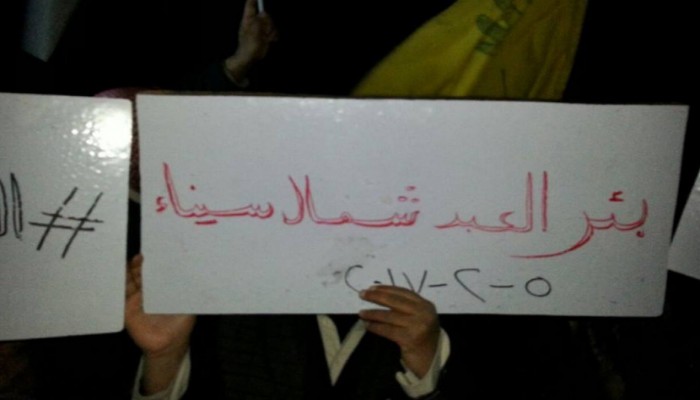 بئر العبد شمال سيناء
٥-٢-٢٠١٧
#ال